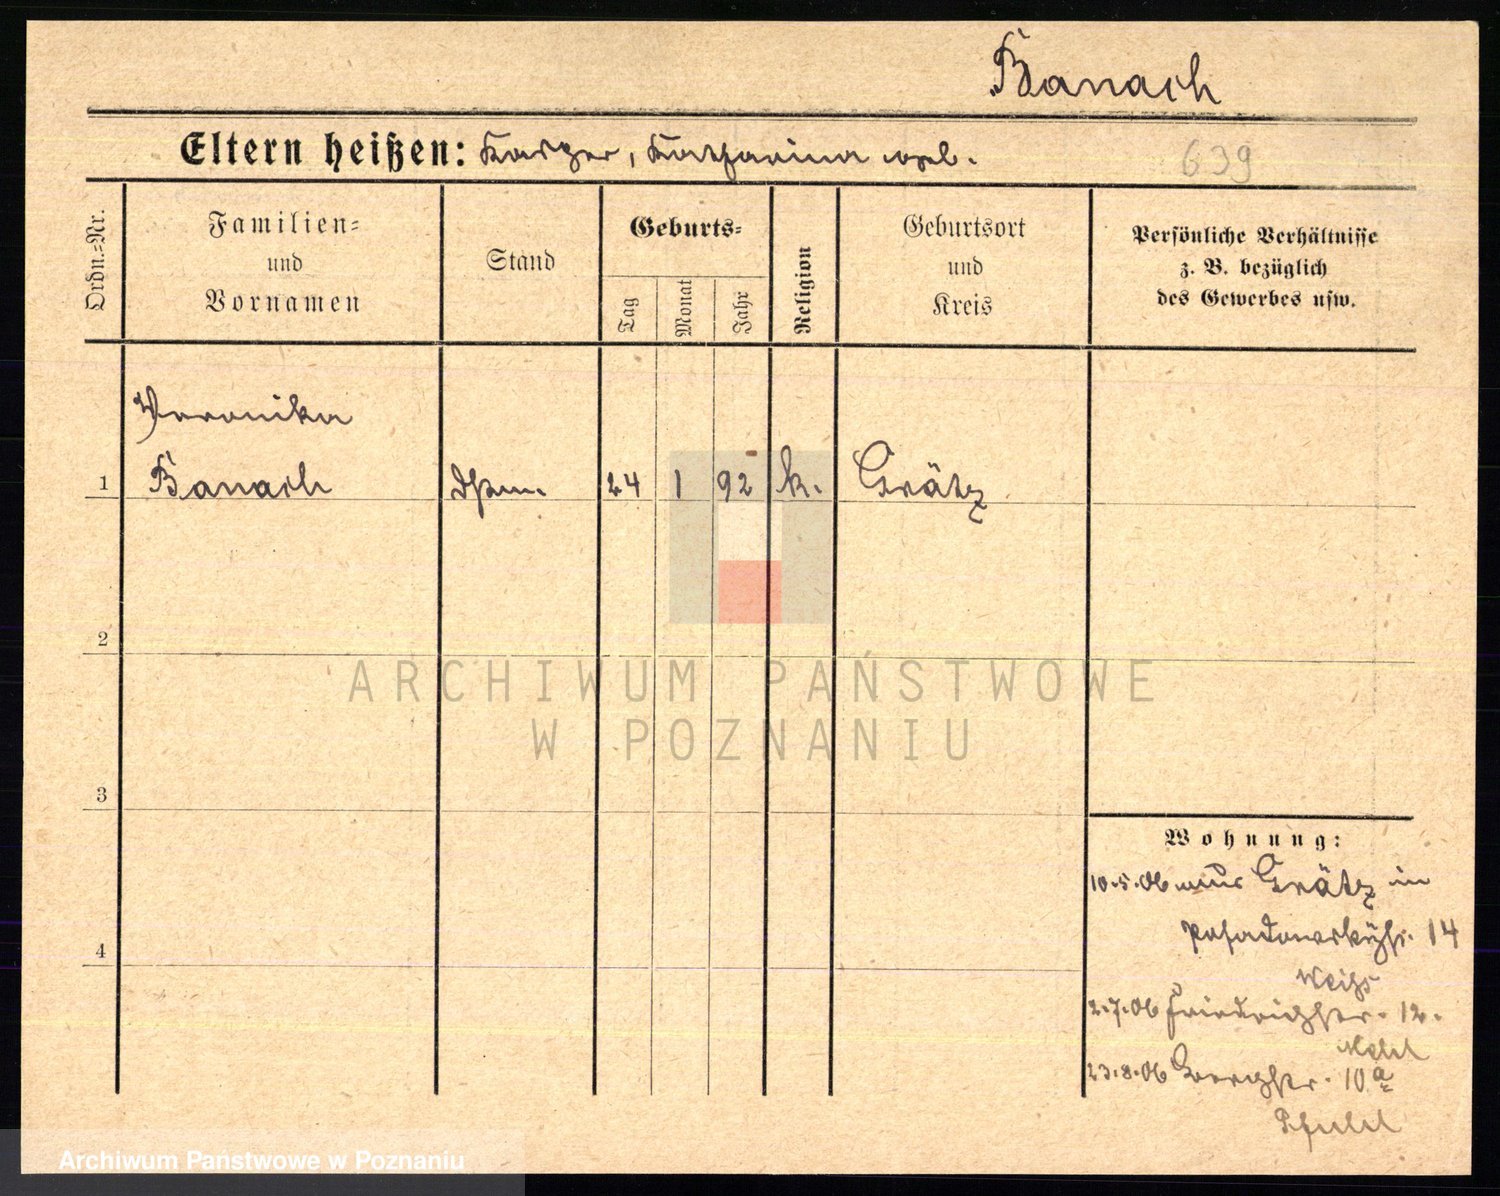 Banach
Eltern heißen: Kasper, Katharina geb.
639
Ordn.-Nr.
Familien-
und
Vornamen
Stand
Geburts-
Tag
Monat
Jahr
Religion
Geburtsort
und
Kreis
Persönliche Verhältnisse
z. B. bezüglich
des Gewerbes usw.
Veronika
1 Banach 24 1 92 k. Grätz
2
ARCHIWUM PAŃSTWOWE
W POZNANIU
3
Wohnung:
10.5.06 aus Grätz in
14
4
2.7.06 Friedrichstr. 12.
23.8.06 Georgstr. 10a
Archiwum Państwowe w Poznaniu